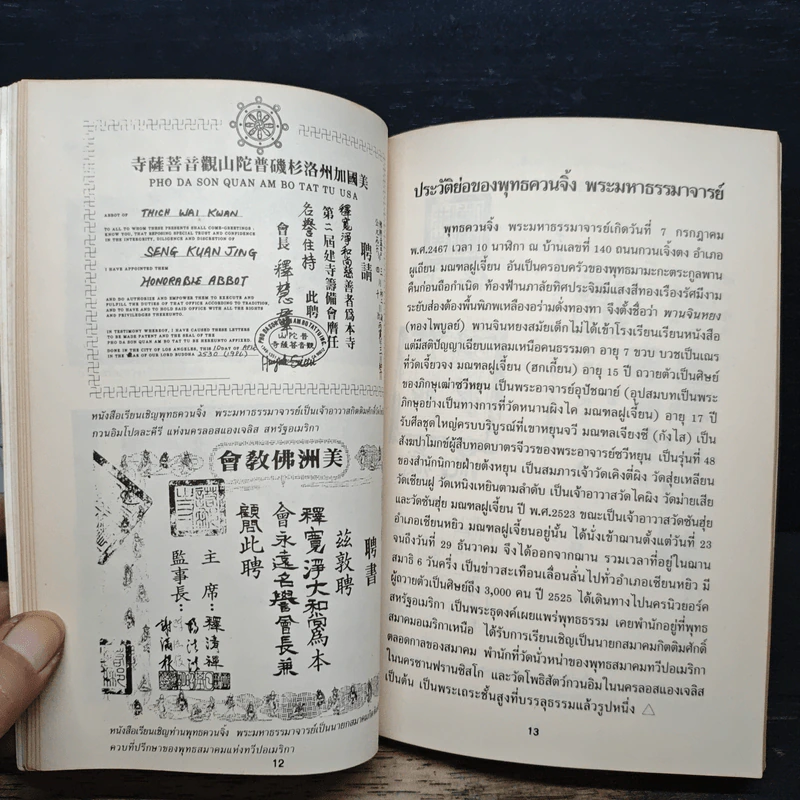 美國加州洛杉磯普陀山觀音菩薩寺
PHO DA SON QUAN AM BO TAT TU USA
ABBOT OF THICH WAI KWAN
TO ALL TO WHOM THESE PRESENTS SHALL COME-GREETINGS:
KNOW YOU, THAT REPOSING SPECIAL TRUST AND CONFIDENCE
IN THE INTERGRITY, DILIGENCE AND DISCRETION OF
SENG KUAN JING
I HAVE APPOINTED THEM
HONORABLE ABBOT
AND DO AUTHORIZE AND EMPOWER THEM TO EXECUTE AND
FULFILL THE DUTIES OF THAT OFFICE ACCORDING TO TRADITION,
AND TO HAVE AND TO HOLD SAID OFFICE WITH ALL THE RIGHTS
AND PRIVILEGES THEREUNTO.
IN TESTIMONY WHEREOF, I HAVE CAUSED THESE LETTERS
TO BE MADE PATENT AND THE SEAL OF THE
PHO DA SON QUAN AM BO TAT TU TO BE HEREUNTO AFFIXED.
DONE IN THE CITY OF LOS ANGELES, THIS
IN THE YEAR OF OUR LORD BUDDHA 2530 (1986)
聘請
釋寬淨和尚慈善者為本寺
第二屆建寺籌備會膺任
名譽住持 此聘
會長 釋慧
หนังสือเรียนเชิญพุทธควนจิ้ง พระมหาธรรมาจารย์เป็นเจ้าอาวาสกิตติมศักดิ์
กวนอิมโปตละคีรี แห่งนครลอสแองเจลิส สหรัฐอเมริกา
美洲佛教會
聘書
茲敦聘
釋寬淨大和尚為本
會永遠名譽會長兼
顧問此聘
主席 釋
監事長 謝
หนังสือเรียนเชิญท่านพุทธควนจิ้ง พระมหาธรรมาจารย์เป็นนายกสมาคม
ควบที่ปรึกษาของพุทธสมาคมแห่งทวีปอเมริกา
12
ประวัติย่อของพุทธควนจิ้ง พระมหาธรรมาจารย์
พุทธควนจิ้ง พระมหาธรรมาจารย์เกิดวันที่ 7 กรกฎาคม
พ.ศ.2467 เวลา 10 นาฬิกา ณ บ้านเลขที่ 140 ถนนกวนเจิ้งตง อำเภอ
ผูเถียน มณฑลฝูเจี้ยน อันเป็นครอบครัวของพุทธมามะกะตระกูลพาน
คืนก่อนถือกำเนิด ท้องฟ้าด้านภาลัยทิศประจิมมีแสงสีทองเรืองรัศมีงาม
ระยับส่องต้องพื้นพิภพเหลืองอร่ามดั่งทองทา จึงตั้งชื่อว่า พานจินหยง
(ทองไพบูลย์) พานจินหยงสมัยเด็กไม่ได้เข้าโรงเรียนเรียนหนังสือ
แต่มีสติปัญญาเฉียบแหลมเหนือคนธรรมดา อายุ 7 ขวบ บวชเป็นเณร
ที่วัดเจี้ยวจง มณฑลฝูเจี้ยน (ฮกเกี้ยน) อายุ 15 ปี ถวายตัวเป็นศิษย์
ของภิกษุเฒ่าซวีหยุน เป็นพระอาจารย์อุปัชฌาย์ (อุปสมบทเป็นพระ
ภิกษุอย่างเป็นทางการที่วัดหนานผิงไค มณฑลฝูเจี้ยน) อายุ 17 ปี
รับศีลชุดใหญ่ครบบริบูรณ์ที่เขาหยุนจวี มณฑลเจียงซี (กังไส) เป็น
สังฆปาโมกข์ผู้สืบทอดบาตรจีวรของพระอาจารย์ซวีหยุน เป็นรุ่นที่ 48
ของสำนักนิกายฝ่ายต้งหยุน เป็นสมภารเจ้าวัดเคิงตี่ผิง วัดสุ่ยเหลียน
วัดเซียนฝู วัดเหนิงเหยินตามลำดับ เป็นเจ้าอาวาสวัดไคผิง วัดม่ายเสีย
และวัดซันฮุ่ย มณฑลฝูเจี้ยน ปี พ.ศ.2523 ขณะเป็นเจ้าอาวาสวัดซันฮุ่ย
อำเภอเซียนหยิว มณฑลฝูเจี้ยนอยู่นั้น ได้นั่งเข้าฌานตั้งแต่วันที่ 23
จนถึงวันที่ 29 ธันวาคม จึงได้ออกจากฌาน รวมเวลาที่อยู่ในฌาน
สมาธิ 6 วันครึ่ง เป็นข่าวสะเทือนเลื่อนลั่นไปทั่วอำเภอเซียนหยิว มี
ผู้ถวายตัวเป็นศิษย์ถึง 3,000 คน ปี 2525 ได้เดินทางไปนครนิวยอร์ค
สหรัฐอเมริกา เป็นพระธุดงค์เผยแพร่พุทธธรรม เคยพำนักอยู่ที่พุทธ
สมาคมอเมริกาเหนือ ได้รับการเรียนเชิญเป็นนายกสมาคมกิตติมศักดิ์
ตลอดกาลของสมาคม พำนักที่วัดนั่วหน่าของพุทธสมาคมทวีปอเมริกา
ในนครซานฟรานซิสโก และวัดโพธิสัตว์กวนอิมในนครลอสแองเจลิส
เป็นต้น เป็นพระเถระชั้นสูงที่บรรลุธรรมแล้วรูปหนึ่ง △
13